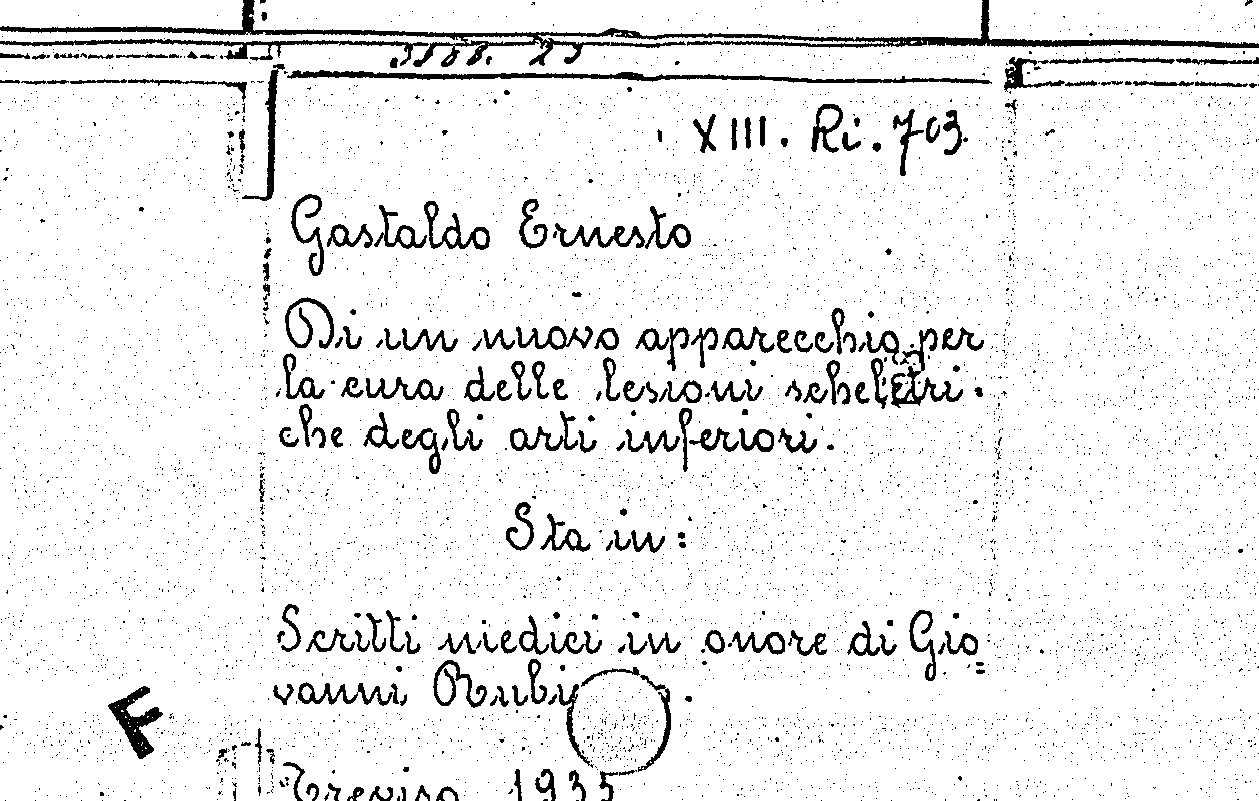 XIII. Ri. 703
Gastaldo Ernesto
Di un nuovo apparecchio per
la cura delle lesioni scheletri-
che degli arti inferiori.
Sta in:
Scritti medici in onore di Gio=
vanni
F
Treviso 1935